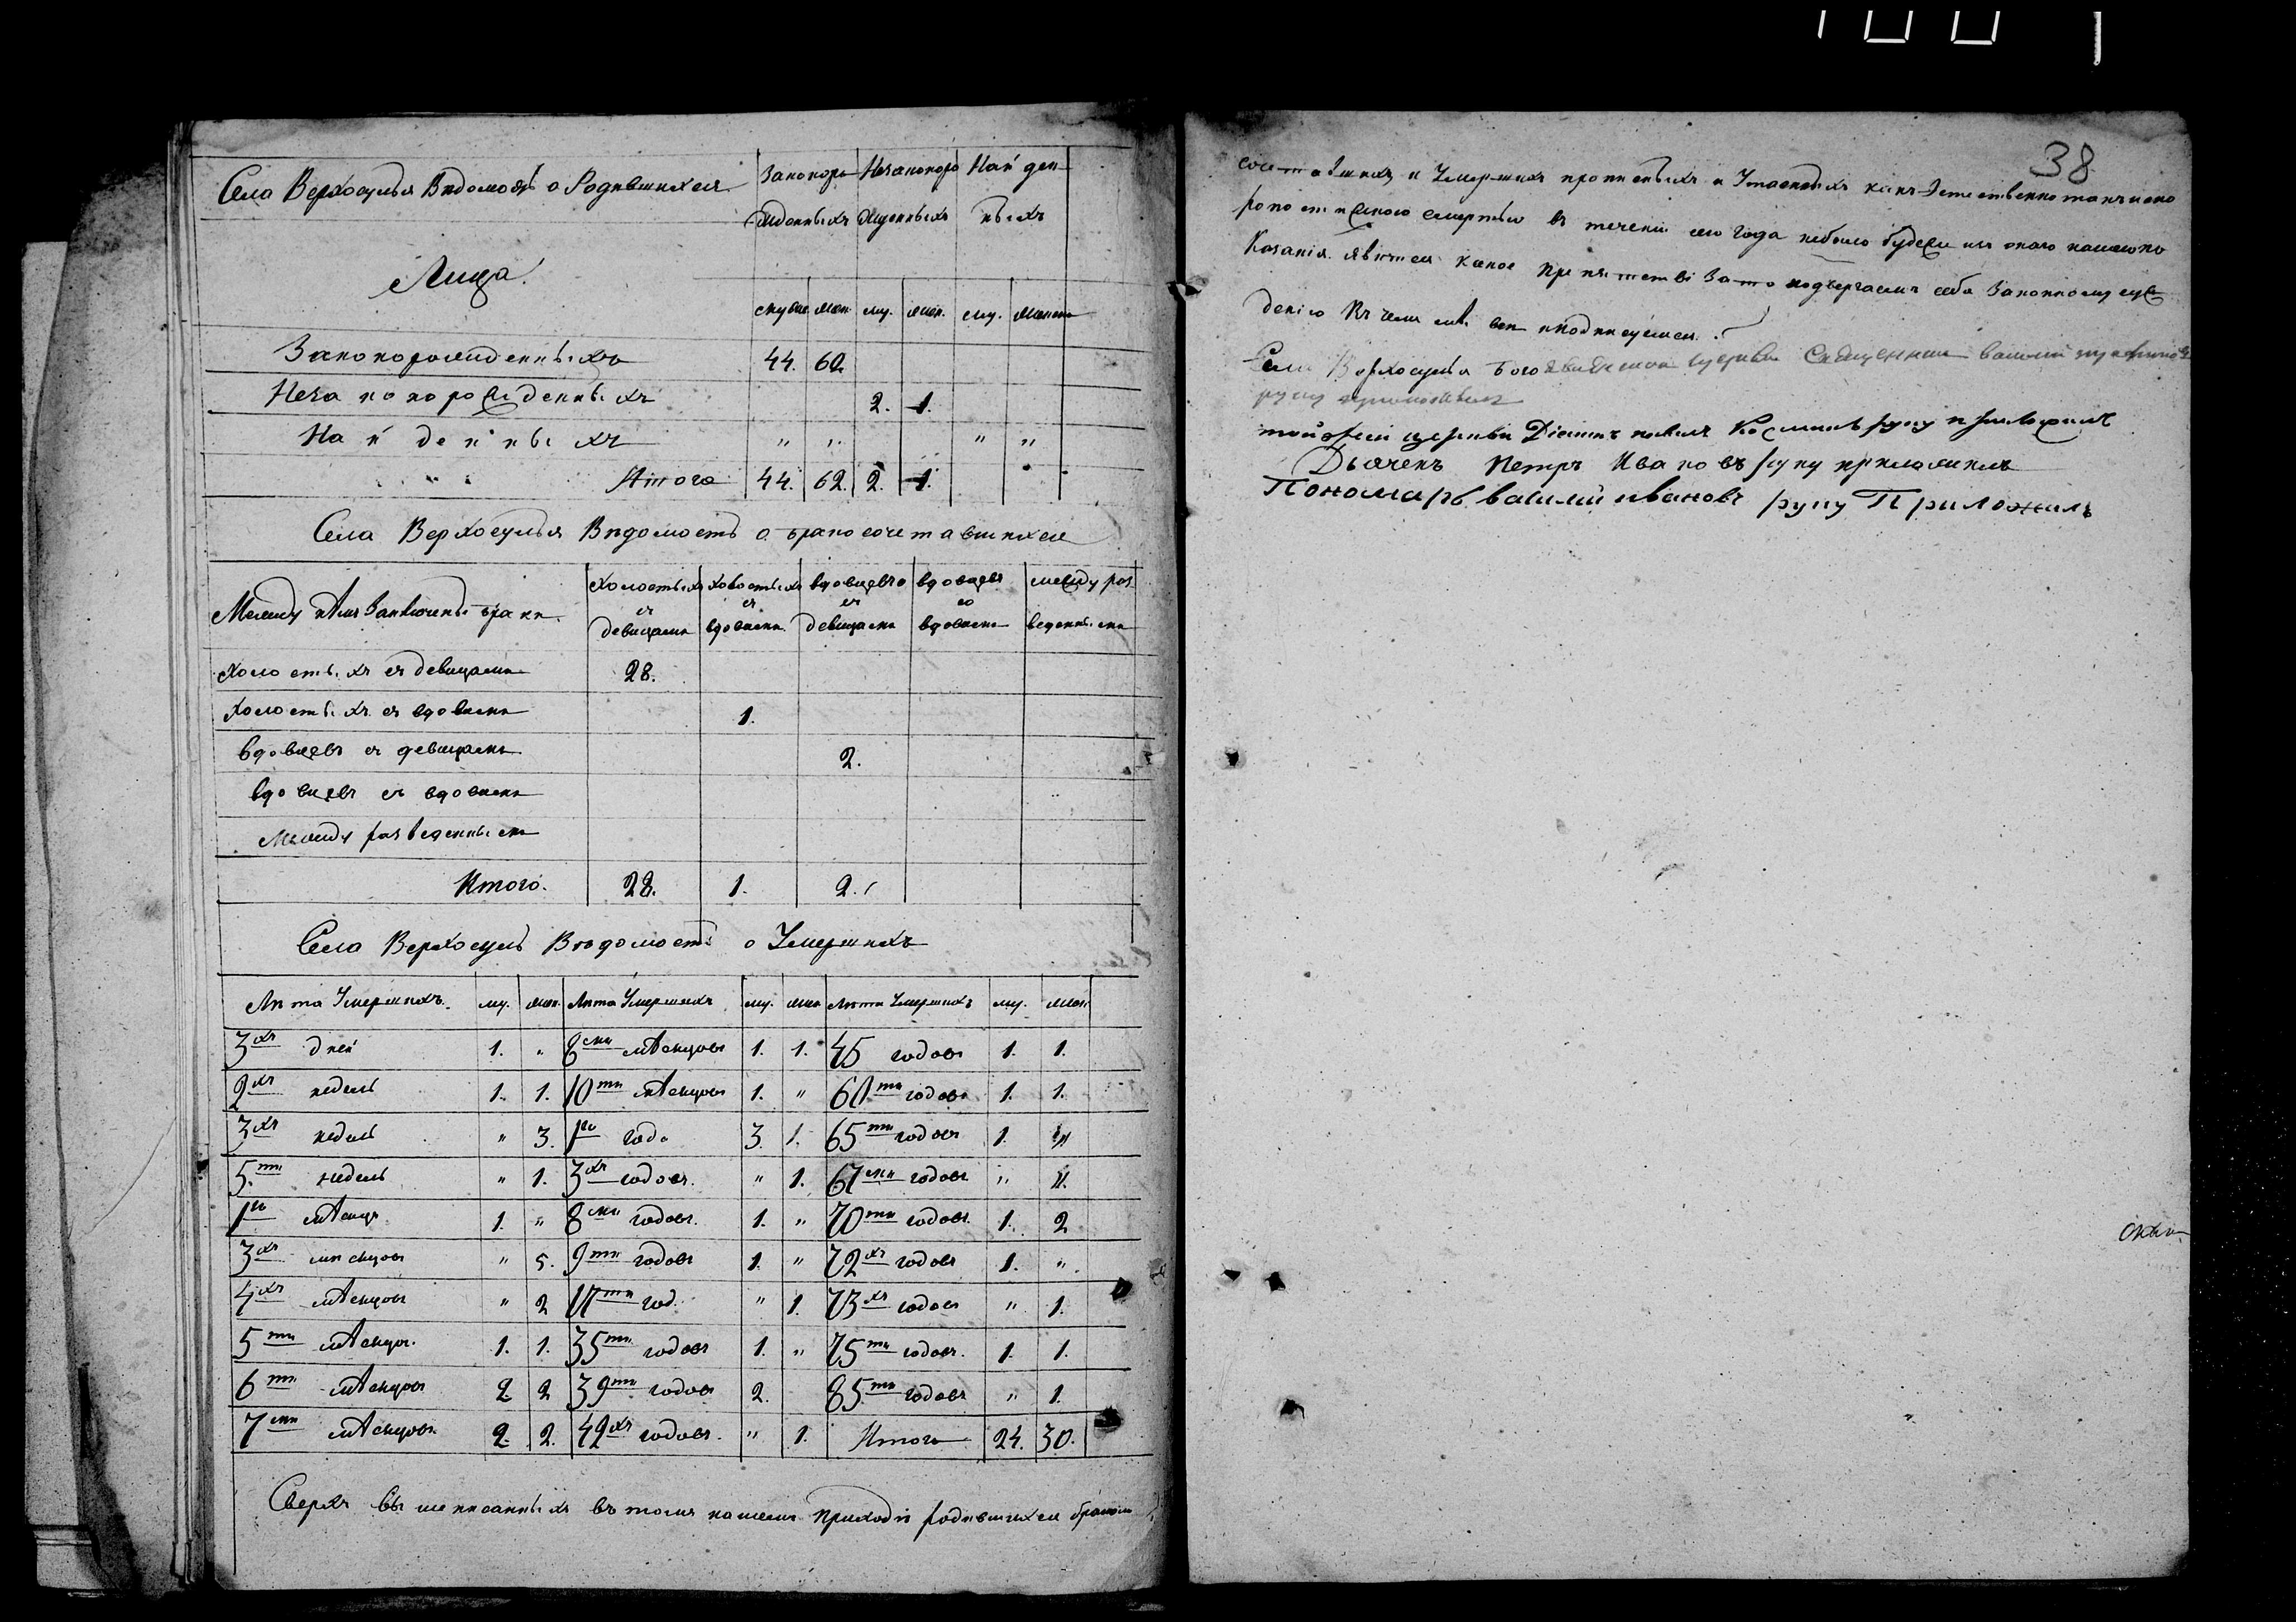 Села Верхосулья Вѣдомость о Родившихся
Законоро Незаконоро Най ден
жденныхъ жденныхъ ныхъ
Лица.
мужес. жен. му. жен. му. женск
Законорожденныхъ 44. 62.
Незаконорожденныхъ 2. 1.
Найденныхъ " " " "
Итого 44. 62. 2. 1.
Села Верхосулья Вѣдомость о бракосочетавшихся
Между кѣмъ Заключены браки.
Холостыхъ съ девицами
холостыхъ съ вдовами
вдовцевъ съ девицами
вдовцевъ со вдовами
между разведенными
Холостыхъ съ девицами 28.
Холостыхъ съ вдовами 1.
вдовцевъ съ девицами 2.
вдовцевъ съ вдовами
Между разведенными
Итого. 28. 1. 2.
Села Верхосуль Вѣдомость о Умершихъ
Лѣта Умершихъ. му. жен. Лѣта Умершихъ му. жен Лѣта Умершихъ му. жен.
3хъ дней 1. " 8ми мѣсяцовъ 1. 1. 45 годовъ 1. 1.
2хъ недель 1. 1. 10ти мѣсяцовъ 1. " 60ти годовъ 1. 1.
3хъ недель " 3. 1го года 3. 1. 65ти годовъ 1.
5ти недель " 1. 3хъ годовъ. " 1. 67ми годовъ "
1го мѣсяца 1. " 8ми годовъ. 1. " 70ти годовъ. 1. 2
3хъ мѣсяцовъ " 5. 9ти годовъ 1. " 72хъ годовъ 1. "
4хъ мѣсяцовъ " 2 17ти год. " 1. 73хъ годовъ " 1.
5ти мѣсяцъ. 1. 1. 35ти годовъ 1. " 75ти годовъ. 1. 1.
6ти мѣсяцовъ 2. 2 39ти годовъ 2. 85ти годовъ " 1.
7ми мѣсяцовъ 2. 2. 42хъ годовъ. " 1. Итого 24. 30.
Сверхъ вышеписанныхъ въ томъ нашемъ приходѣ родившихся бракосо
38
четавшихъ и Умершихъ прописныхъ и Утаенныхъ какъ Естественно такъ и ско
ропостижною смертью въ течении сего года небыло будежи изъ оного нашего по
Казанія явится какое препятстві Зато подвергаемъ себя Законному суж
денію Въ чемъ мы вси и подписуемся.
Села Верхосулья Богоявленской церкви Священник васили
руку приложилъ
тойжеи церкви Діяконъ павелъ Косминъ руку приложилъ
Дьячекъ Петръ Ивановъ руку приложилъ
Пономарь василий ивановъ руку Приложилъ